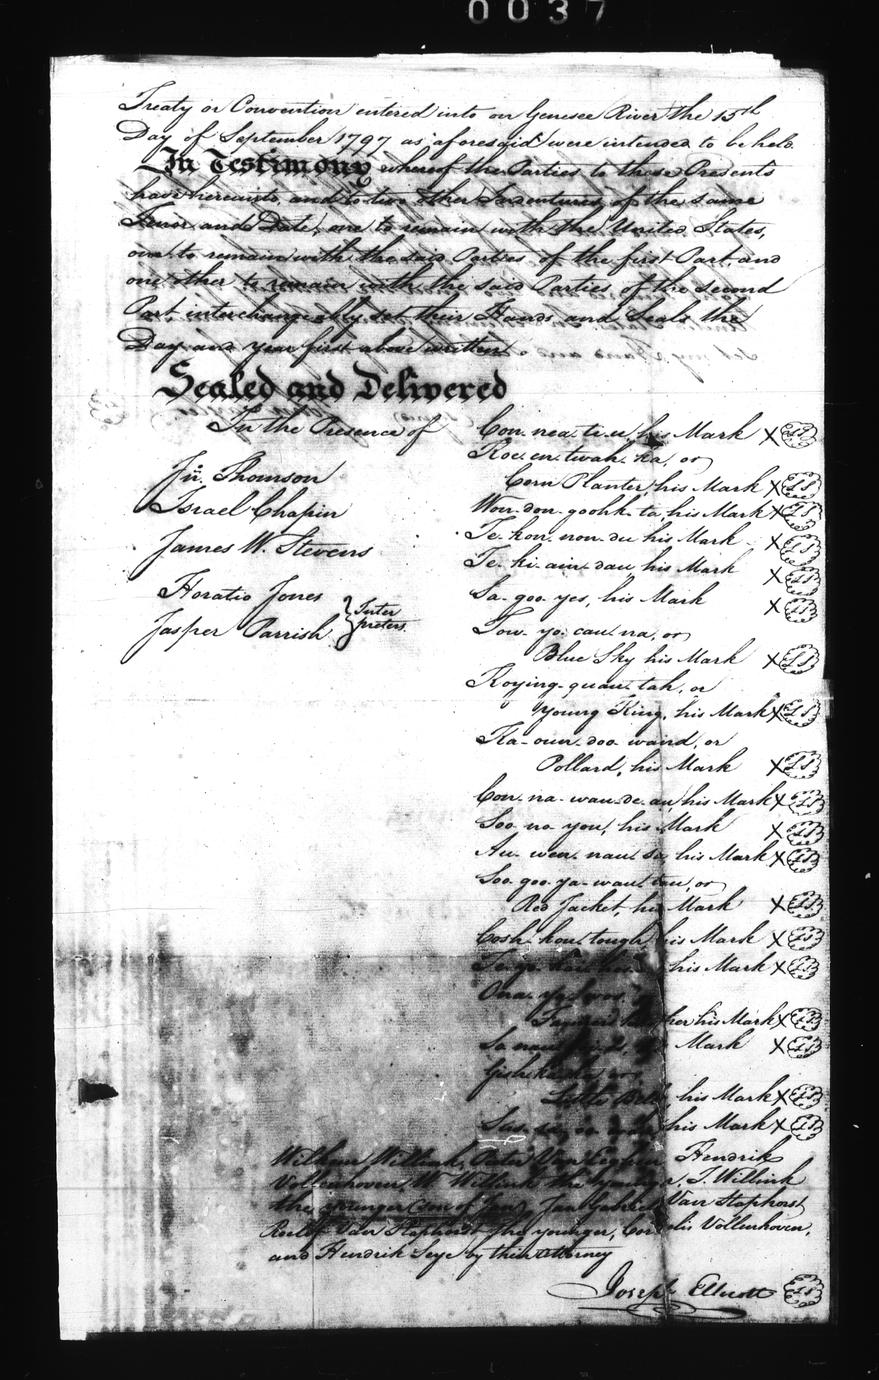 0037
Treaty or Convention entered into on Genesee River the 15th
Day of September 1797 as aforesaid were intended to be held
In Testimony whereof the Parties to these Presents
have hereunto, and to two other Indentures of the same
Tenor and Date, one to remain with the United States,
one to remain with the said Parties of the first Part, and
one other to remain with the said Parties of the second
Part, interchangeably set their Hands and Seals the
Day and year first above written
Sealed and Delivered
In the Presence of
Jn. Thomson
Israel Chapin
James W. Stevens
Horatio Jones
Jasper Parrish } Inter
preters.
Con. nea. ti. u, his Mark X LS
Koe. en. twah. ka, or
Corn Planter, his Mark X LS
Won. don. goohk. ta, his Mark X LS
Te. kon. non. du his Mark X LS
Te. ki. ain. dau his Mark X LS
Sa. goo. yes, his Mark X LS
Tow. yo. cau. na, or
Blue Sky his Mark X LS
Koying. quau. tah, or
Young King, his Mark X LS
Ka. oun. doo. waind, or
Pollard, his Mark X LS
Con. na. wau. de. au, his Mark X LS
Soo. no. you, his Mark X LS
Au. wen. nau. sa, his Mark X LS
Soo. goo. ya. wau. tau, or
Red Jacket, his Mark X LS
Cosh. kou. tough his Mark X LS
his Mark X LS
Ona. ya. wos.
his Mark X LS
Sa. nau. Mark X LS
Gish. or
Little his Mark X LS
Sus. his Mark X LS
Wilhem Willink, Pieter Van Eeghen, Hendrik
Vollenhoven, W. Willink the younger, J. Willink
the younger (son of Jan) Jan Gabriel Van Staphorst
Roelof Van Staphorst the younger, Cornelis Vollenhoven,
and Hendrik Seye by their Attorney
Joseph Ellicott LS